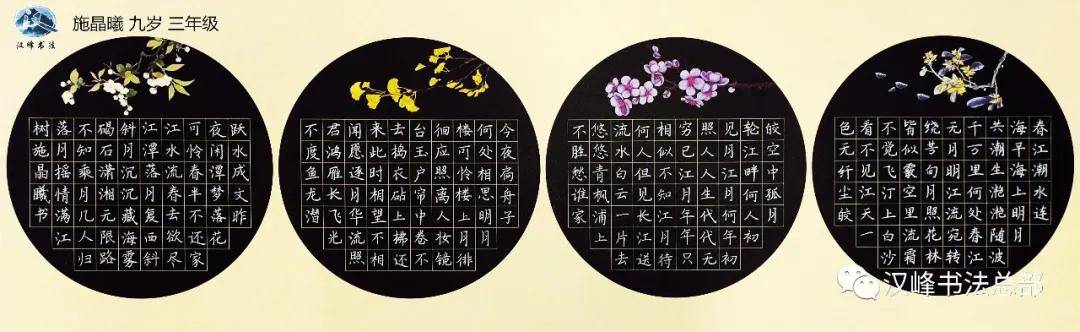 汉峰书法
施晶曦 九岁 三年级
春江潮水连
海平海上明月
共潮生滟滟随波
千万里何处春江
无月明江流宛转
绕芳甸月照花林
皆似霰空里流霜
不觉飞汀上白沙
看不见江天一
色无纤尘皎
皎空中孤月
轮江畔何人初
见月江月何年初
照人人生代代无
穷已江月年年只
相似不知江月待
何人但见长江送
流水白云一片去
悠悠青枫浦上
不胜愁谁家
今夜扁舟子
何处相思明月
楼可怜楼上月徘
徊应照离人妆镜
台玉户帘中卷不
去捣衣砧上拂还
来此时相望不相
闻愿逐月华流照
君鸿雁长飞光
不度鱼龙潜
跃水成文昨
夜闲潭梦落花
可怜春半不还家
江水流春去欲尽
江潭落月复西斜
斜月沉沉藏海雾
碣石潇湘无限路
不知乘月几人归
落月摇情满江
树施晶曦书
汉峰书法总部